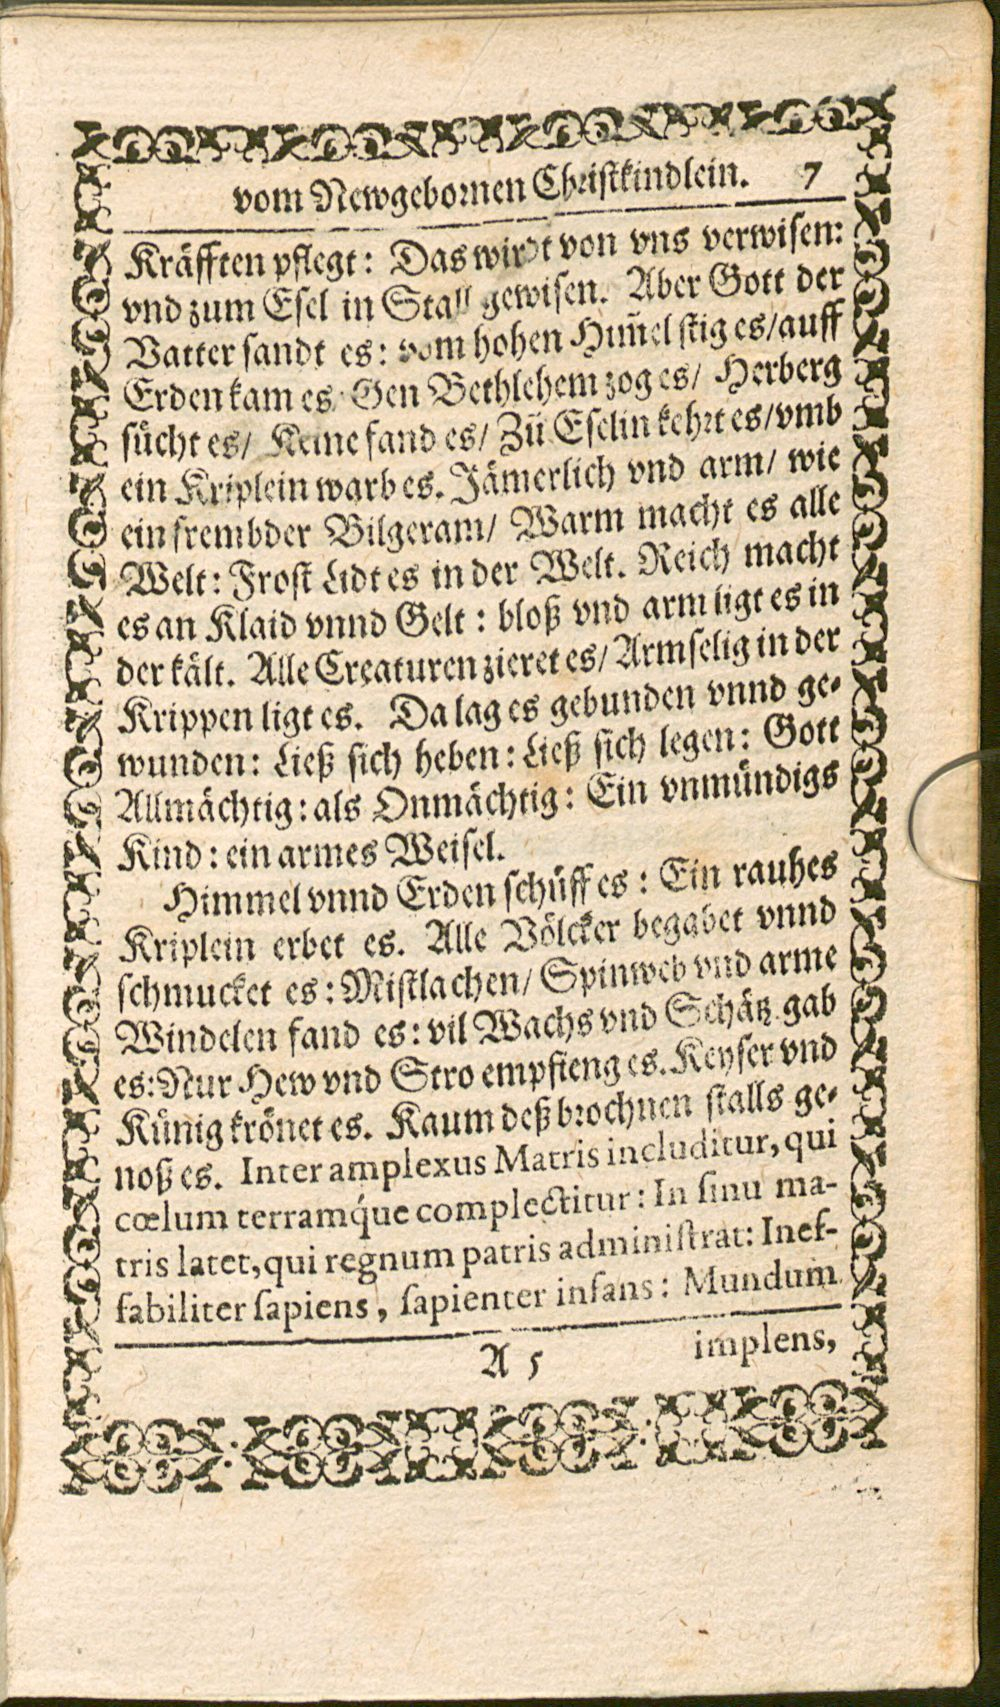 vom Newgebornen Christkindlein. 7
Kräfften pflegt: Das wirdt von vns verwisen:
vnd zum Esel in Stall gewisen. Aber Gott der
Vatter sandt es: vom hohen Him̃el stig es/auff
Erden kam es Gen Bethlehem zog es/ Herberg
sücht es/ Keine fand es/ Zü Eselin kehrt es/vmb
ein Kriplein warb es. Jämerlich vnd arm/ wie
ein frembder Bilgeram/ Warm macht es alle
Welt: Frost Lidt es in der Welt. Reich macht
es an Klaid vnnd Gelt: bloß vnd arm ligt es in
der kält. Alle Creaturen zieret es/ Armselig in der
Krippen ligt es. Da lag es gebunden vnnd ge-
wunden: Ließ sich heben: Ließ sich legen: Gott
Allmächtig: als Onmächtig: Ein vnmündigs
Kind: ein armes Weisel.
Himmel vnnd Erden schüff es: Ein rauhes
Kriplein erbet es. Alle Völcker begabet vnnd
schmucket es: Mistlachen/ Spinweb vnd arme
Windelen fand es: vil Wachs vnd Schätz gab
es: Nur Hew vnd Stro empfieng es. Keyser vnd
Künig krönet es. Kaum deß brochnen stalls ge-
noß es. Inter amplexus Matris includitur, qui
cœlum terramq́ue complectitur: In sinu ma-
tris latet, qui regnum patris administrat: Inef-
fabiliter sapiens, sapienter infans: Mundum
A 5 implens,